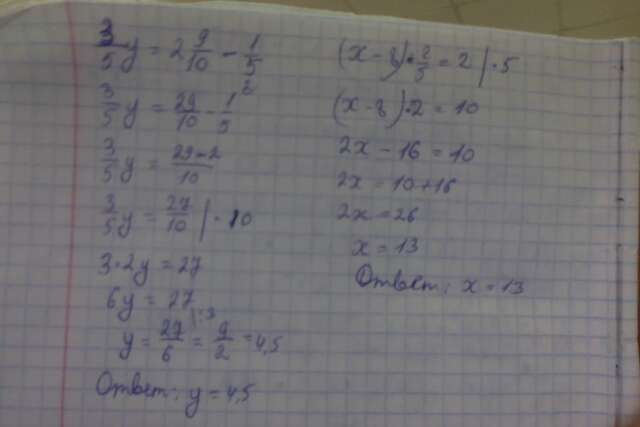 3/5 y = 2 9/10 - 1/5
3/5 y = 29/10 - 1/5 ²
3/5 y = 29-2/10
3/5 y = 27/10 | · 10
3·2y = 27
6y = 27
y = 27/6 |:3 = 9/2 = 4,5
Ответ: y = 4,5
(x - 8)·2/5 = 2 | · 5
(x - 8)·2 = 10
2x - 16 = 10
2x = 10+16
2x = 26
x = 13
Ответ: x = 13